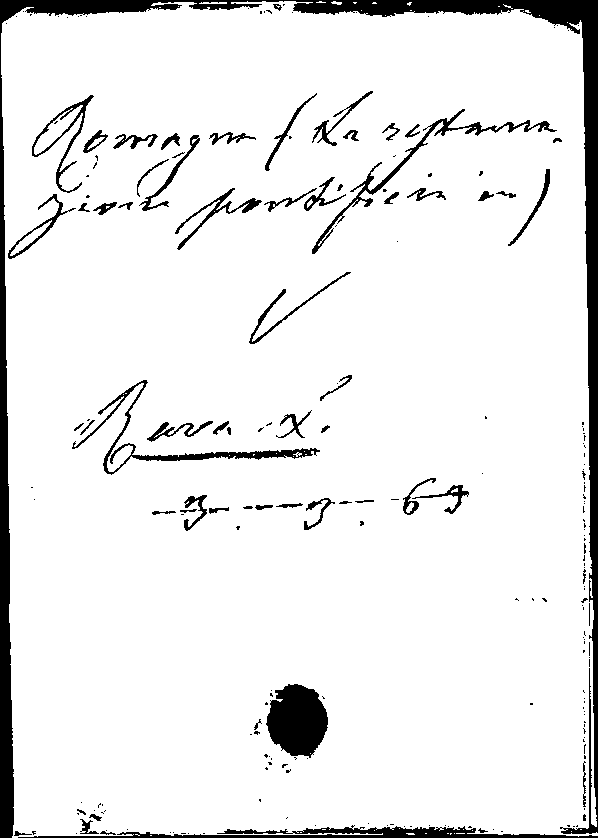 Romagna (La restaura-
zione pontificia in)
V
Rava L.
3. 3. 69